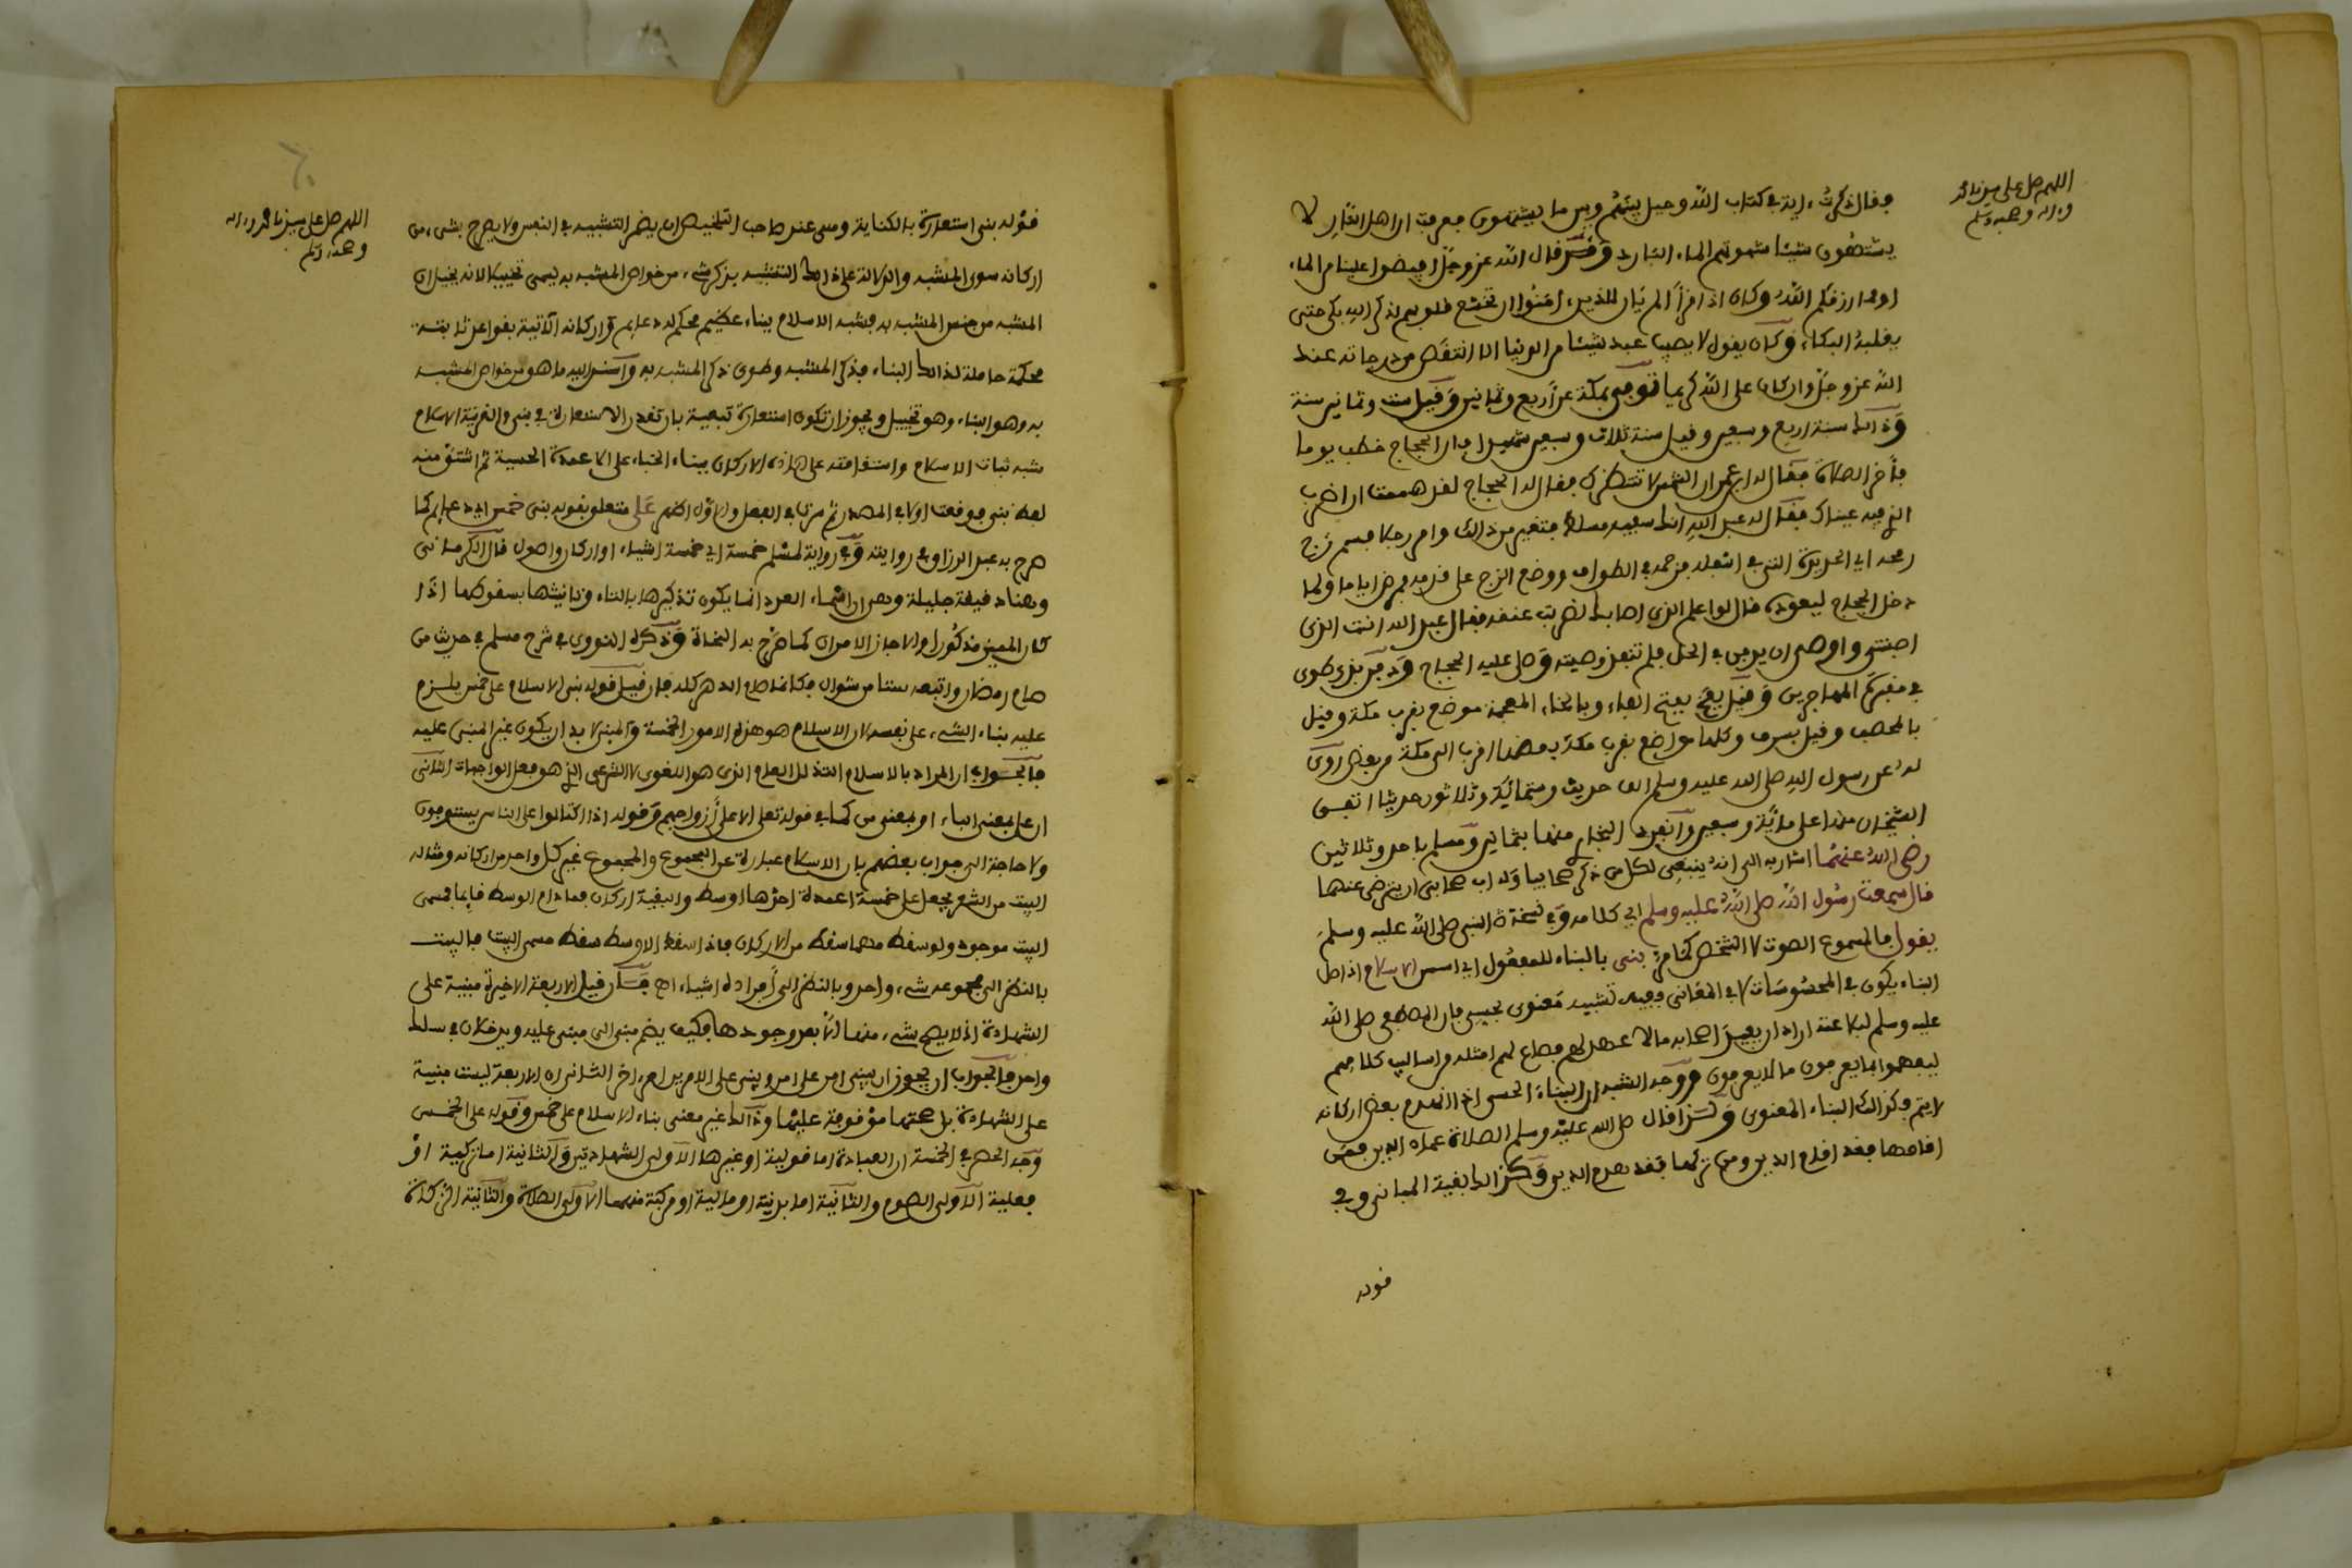 اللهم صل على سيدنا محمد
وءاله وصحبه وسلم
فقال ذكرت ءاية في كتاب الله وحيل بينهم وبين ما يشتهون فعرفت ان اهل النار لا
يشتهون شيئا شهوتهم الماء البارد وقد قال الله عز وجل افيضوا علينا من الماء
او مما رزقكم الله وكان اذا قرأ الم يان للذين ءامنوا ان تخشع قلوبهم لذكر الله بكى حتى
يغلبه البكاء وكان يقول لا يصيب عبد شيئا من الدنيا الا انتقص من درجاته عند
الله عز وجل وان كان على الله كريما توفي بمكة عن أربع وثمانين وقيل ست وثمانين سنة
وذالك سنة اربع وسبعين وقيل سنة ثلاث وسبعين شهيدا فان الحجاج خطب يوما
فأخر الصلاة فقال له ابن عمر ان الشمس لا تنتظرك فقال له الحجاج لقد هممت ان اضرب
الذي فيه عيناك فقال له عبد الله انك سفيه مسلط فتغير من ذالك وامر رجلا فسم زج
رمحه اي الحديدة التي في اسفله فزحمه في الطواف ووضع الزج على قدمه فمرض اياما ولما
دخل الحجاج ليعوده قال لو اعلم الذي اصابك لضربت عنقه فقال عبد الله انت الذي
اصبتني واوصى ان يدفن في الحل فلم تنفذ وصيته وصلى عليه الحجاج ودفن بذي طوى
في مقبرة المهاجرين وقيل بفخ بفتح الفاء وبالخاء المعجمة موضع بقرب مكة وقيل
بالمحصب وقيل بسرف وكلها مواضع بقرب مكة بعضها اقرب الى مكة من بعض روى
له عن رسول الله صلى الله عليه وسلم الف حديث وستمائة وثلاثون حديثا اتفق
الشيخان منها على مائة وسبعين وانفرد البخاري منها بثمانين ومسلم باحد وثلاثين
رضي الله عنهما اشار به الى انه ينبغي لكل من ذكر صحابيا وله اب صحابي ان يترضى عنهما
قال سمعت رسول الله صلى الله عليه وسلم اي كلامه وفي نسخة النبي صلى الله عليه وسلم
يقول فالمسموع الصوت لا الشخص كما مر بني بالبناء للمفعول اي اسس الاسلام اذ اصل
البناء يكون في المحسوسات لا في المعاني ففيه تشبيه معنوي بحسي فان المصطفى صلى الله
عليه وسلم لبلاغته اراد ان يفيد اصحابه ما لا عهد لهم فصاغ لهم امثلة من اساليب كلامهم
ليفهموا بما يعرفون ما لا يعرفون ووجه الشبه ان البناء الحسي اذا انهدم بعض اركانه
لا يتم وكذالك البناء المعنوي ولذا قال صلى الله عليه وسلم الصلاة عماد الدين فمن
اقامها فقد اقام الدين ومن تركها فقد هدم الدين وكذالك بقية المباني وفي
قوله
٦٠
اللهم صل على سيدنا محمد وءاله
وصحبه وسلم
قوله بني استعارة بالكناية وهي عند صاحب التلخيص ان يضمر التشبيه في النفس ولا يصرح بشيء من
اركانه سوى المشبه والدلالة على ذالك التشبيه بذكر شيء من خواص المشبه به يسمى تخييلا لانه يخيل ان
المشبه من جنس المشبه به فشبه الاسلام ببناء عظيم محكم له دعائم واركانه الآتية بقواعد ثابتة
محكمة حاملة لذالك البناء فذكر المشبه وطوى ذكر المشبه به واسند اليه ما هو من خواص المشبه
به وهو البناء وهو تخييل ويجوز ان تكون استعارة تبعية بان تقدر الاستعارة في بني والقرينة الاسلام
شبه ثبات الاسلام واستقامته على هاذه الاركان ببناء الخباء على الاعمدة الخمسة ثم اشتق منه
لفظ بني فوقعت اولا في المصدر ثم سرت في الفعل والاول اظهر على متعلق بقوله بني خمس اي دعائم كما
صرح به عبد الرزاق في روايته وفي رواية لمسلم خمسة اي خمسة اشياء او اركان واصول قال الكرماني
وهناك دقيقة جليلة وهي ان اسماء العدد انما يكون تذكيرها بالتاء وتانيثها بسقوطها اذا
كان المميز مذكورا والا جاز الامران كما صرح به النحاة وذكره النووي في شرح مسلم في حديث من
صام رمضان واتبعه ستا من شوال فكانما صام الدهر كله فان قيل قوله بني الاسلام على خمس يلزم
عليه بناء الشيء على نفسه لان الاسلام هو هذه الامور الخمسة والمبني لا بد ان يكون غير المبني عليه
فالجواب ان المراد بالاسلام التذلل العام الذي هو اللغوي لا الشرعي الذي هو فعل الواجبات الثاني
ان على بمعنى الباء او بمعنى من كما في قوله تعلى الا على أزواجهم وقوله اذا اكتالوا على الناس يستوفون
ولا حاجة الى جواب بعضهم بان الاسلام عبارة عن المجموع والمجموع غير كل واحد من اركانه ومثاله
البيت من الشعر يجعل على خمسة اعمدة احدها اوسط والبقية اركان فما دام الاوسط قائما فمسمى
البيت موجود ولو سقط مهما سقط من الاركان فاذا سقط الاوسط سقط مسمى البيت فالبيت
بالنظر الى مجموعه شيء واحد وبالنظر الى أفراده اشياء اهـ فان قيل الاربعة الاخيرة مبنية على
الشهادة اذ لا يصح شيء منها الا بعد وجودها فكيف يضم مبني الى مبني عليه ويدخلان في سلك
واحد فالجواب انه يجوز ان يبنى امر على امر ويبنى على الامرين امر ءاخر الثاني ان الاربعة ليست مبنية
على الشهادة بل صحتها موقوفة عليها وذالك غير معنى بناء الاسلام على خمس وقوله على الخمس
وجه الحصر في الخمسة ان العبادة اما قولية او غيرها الاولى الشهادتين والثانية اما تركية او
فعلية الاولى الصوم والثانية اما بدنية او مالية او مركبة منهما الاولى الصلاة والثانية الزكاة